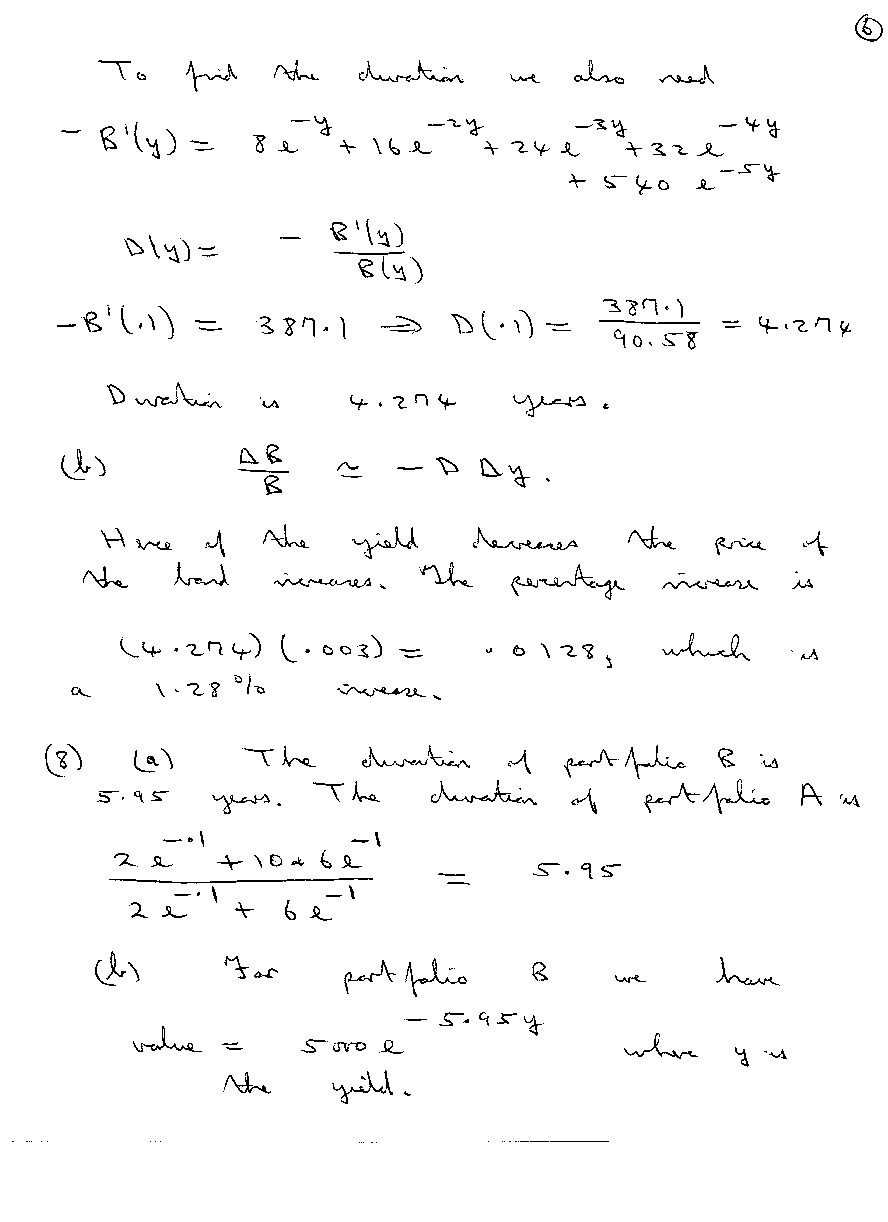 6
To find the duration we also need
- B'(y) = 8e^{-y} + 16e^{-2y} + 24e^{-3y} + 32e^{-4y}
+ 540 e^{-5y}
D(y) = - B'(y) / B(y)
-B'(.1) = 387.1 ⇒ D(.1) = 387.1 / 90.58 = 4.274
Duration is 4.274 years.
(b) ΔB / B ≃ - D Δy.
Hence if the yield decreases the price of
the bond increases. The percentage increase is
(4.274)(.003) = .0128, which is
a 1.28% increase.
(8) (a) The duration of portfolio B is
5.95 years. The duration of portfolio A is
2e^{-.1} + 10*6e^{-1} / 2e^{-.1} + 6e^{-1} = 5.95
(b) For portfolio B we have
value = 5000 e^{-5.95y} where y is
the yield.